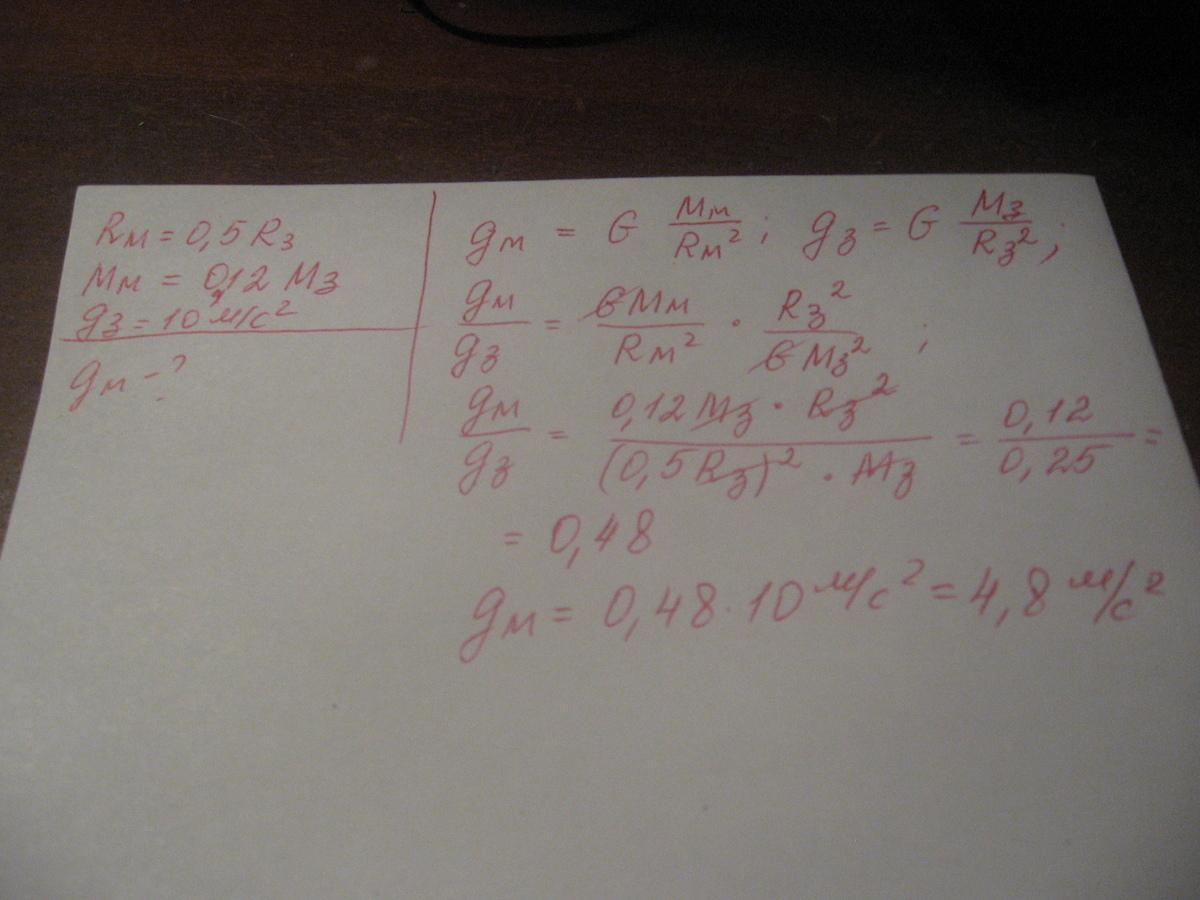 Rм = 0,5 Rз
Mм = 0,12 Mз
gз = 10 м/с²
gм - ?
gм = G Mм/Rм² ; gз = G Mз/Rз² ;
gм/gз = GMм/Rм² · Rз²/GMз² ;
gм/gз = 0,12 Mз · Rз²/(0,5Rз)² · Mз = 0,12/0,25 =
= 0,48
gм = 0,48 · 10 м/с² = 4,8 м/с²